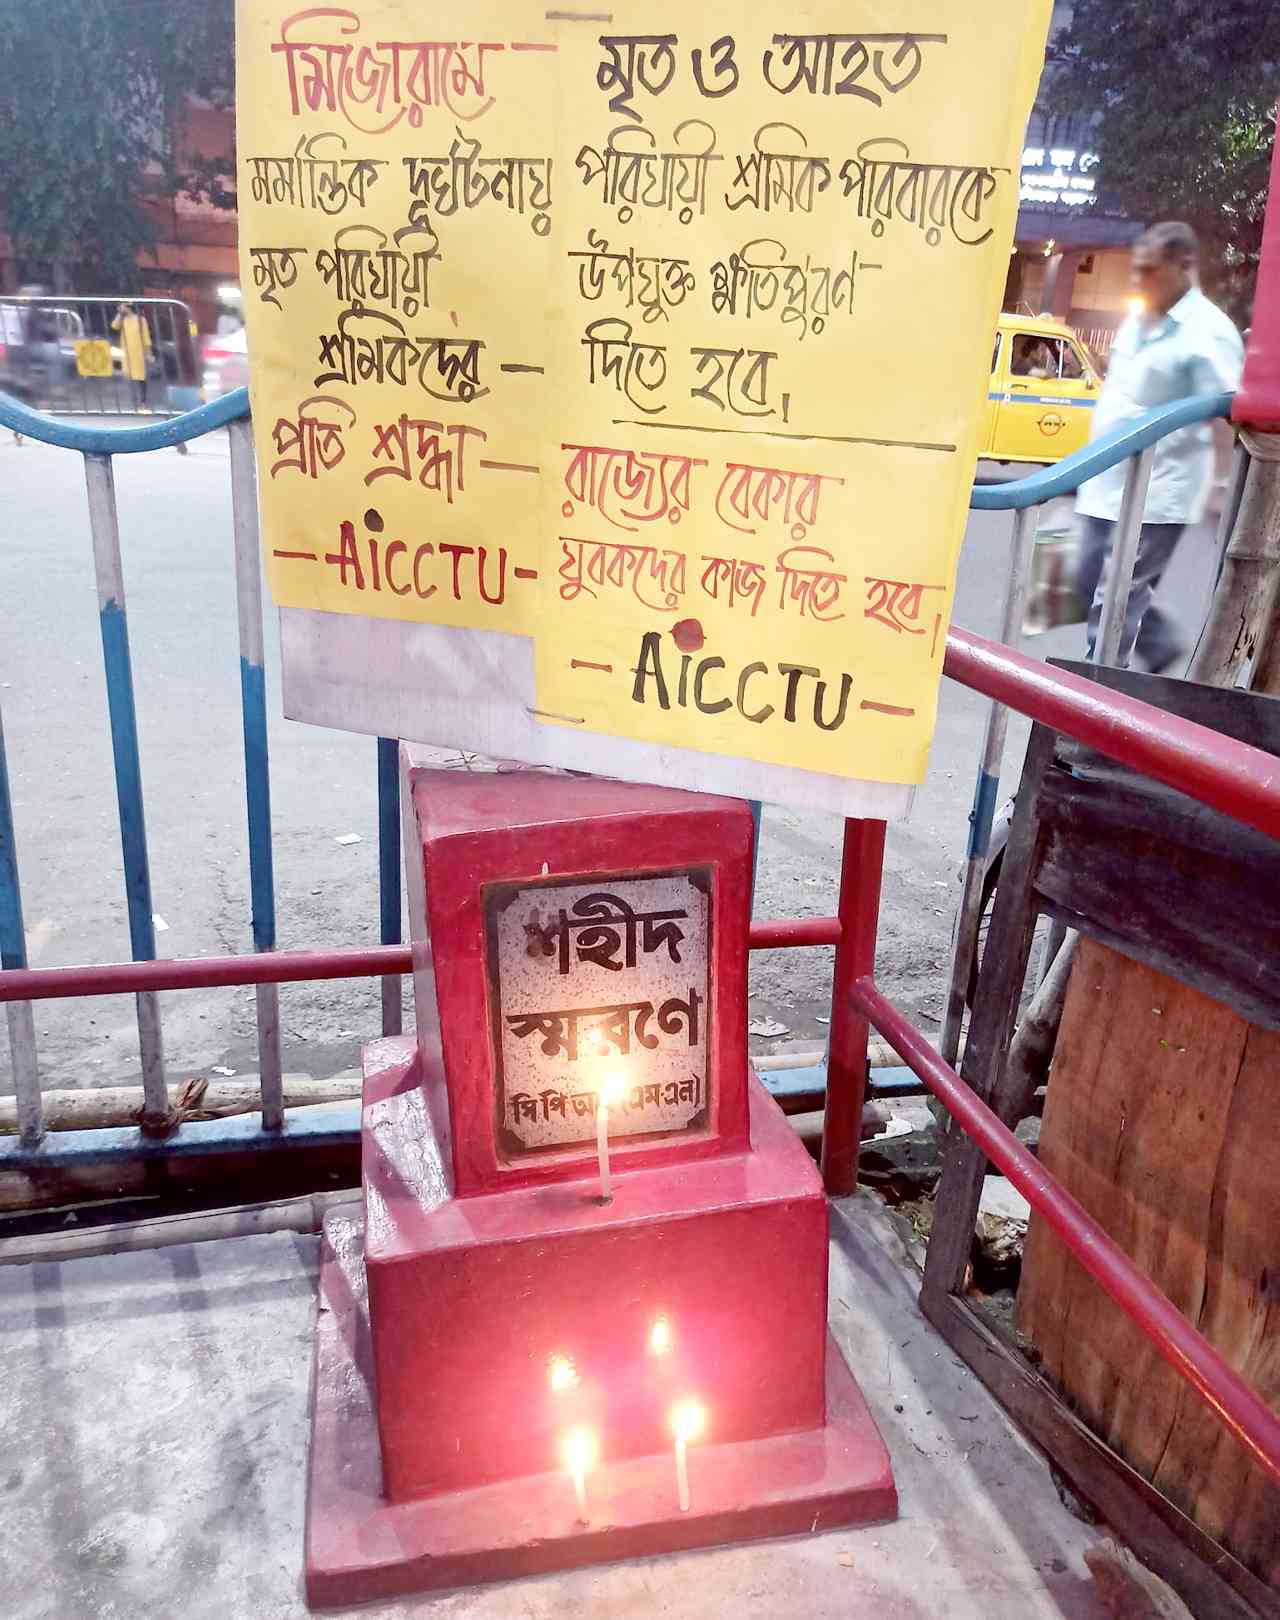 মিজোরামে —
মর্মান্তিক দূর্ঘটনায়
মৃত পরিযায়ী
শ্রমিকদের —
প্রতি শ্রদ্ধা —
— AiCCTU -
মৃত ও আহত
পরিযায়ী শ্রমিক পরিবারকে
উপযুক্ত ক্ষতিপুরণ
দিতে হবে।
রাজ্যের বেকার
যুবকদের কাজ দিতে হবে।
— AiCCTU —
শহীদ
স্মরণে
সি পি আই (এম-এল)